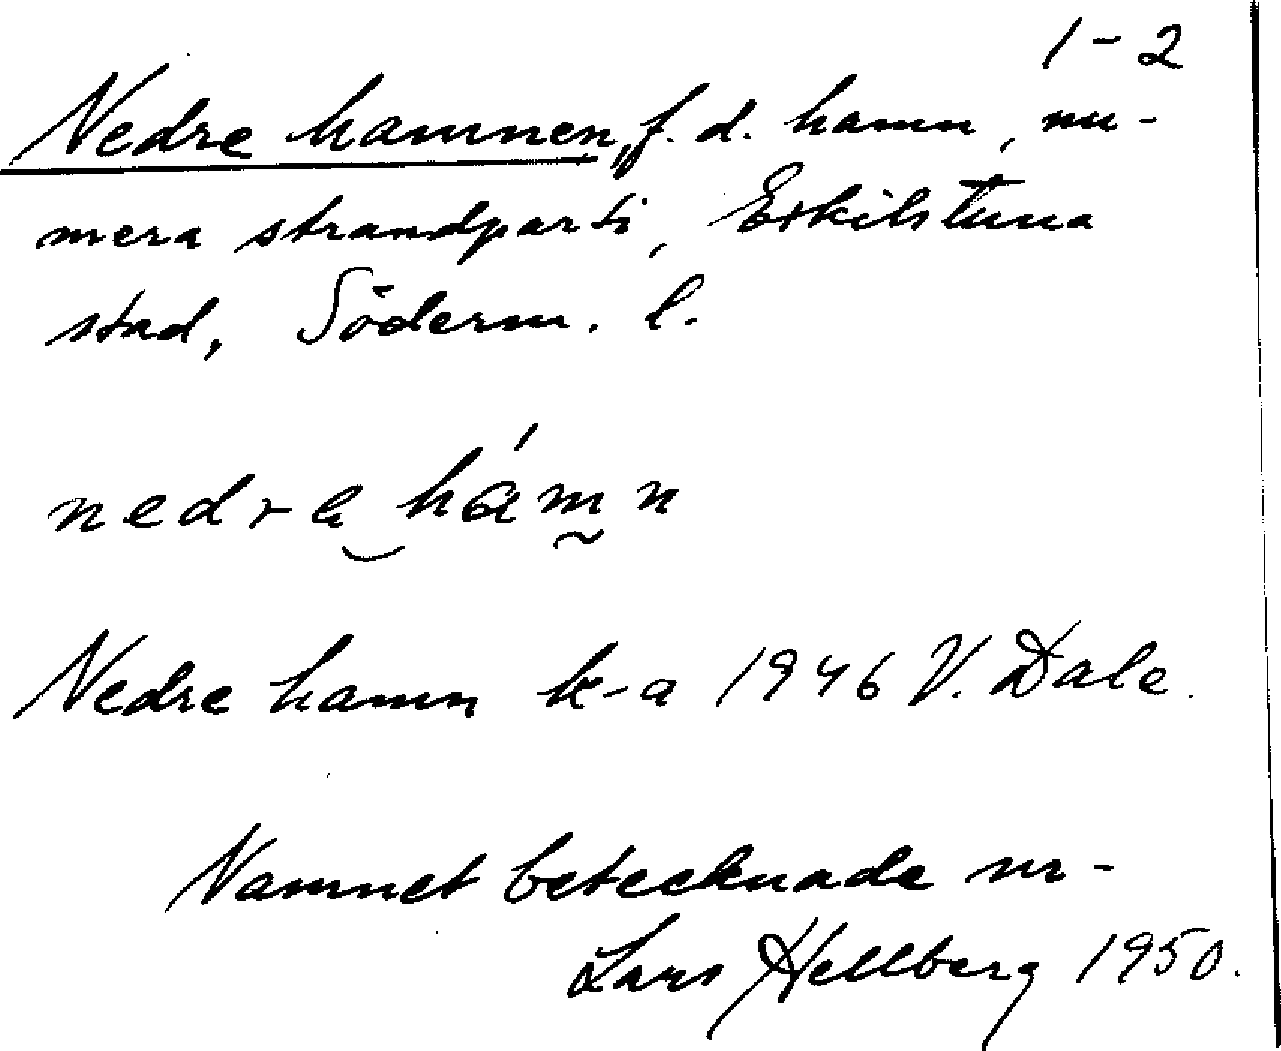 1-2
Nedre hamnen, f. d. hamn, nu-
mera strandparti, Eskilstuna
stad, Söderm. l.
nedrą‿hámn̰
Nedre hamn k-a 1946 V. Dale.
Namnet betecknade ur-
Lars Hellberg 1950.